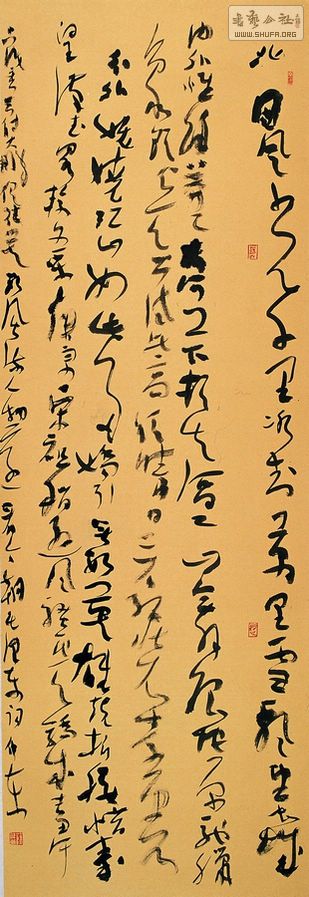 書藝公社
WWW.SHUFA.ORG
北国风光千里冰封万里雪飘望长城
内外惟余莽莽大河上下顿失滔滔山舞银蛇原驰蜡
象欲与天公试比高须晴日看红装素裹
分外妖娆江山如此多娇引无数英雄竞折腰惜秦
皇汉武略输文采唐宗宋祖稍逊风骚一代天骄成吉思汗
只识弯弓射大雕俱往矣数风流人物还看今朝毛泽东词